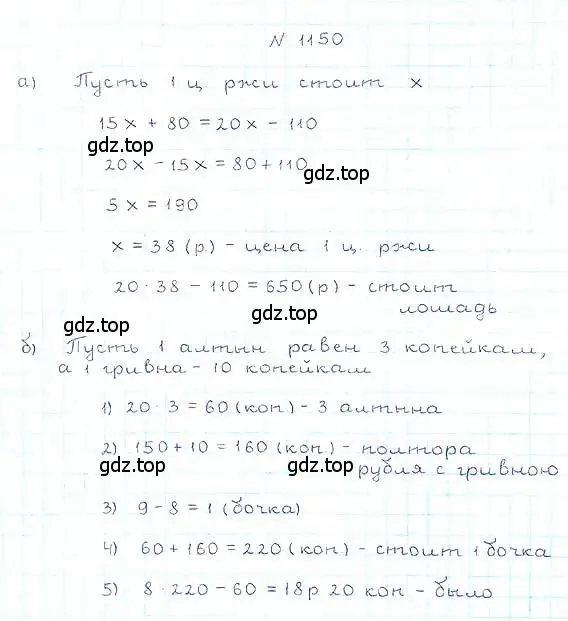 N 1150
а) Пусть 1 ц ржи стоит x
15x + 80 = 20x - 110
gdz.top
20x - 15x = 80 + 110
gdz.top
5x = 190
x = 38 (р) - цена 1 ц. ржи
20 · 38 - 110 = 650 (р) - стоит
gdz.top
лошадь
gdz.top
б) Пусть 1 алтын равен 3 копейкам,
а 1 гривна - 10 копейкам
1) 20 · 3 = 60 (коп) - 3 алтына
2) 150 + 10 = 160 (коп) - полтора
gdz.top gdz.top рубля с гривною
3) 9 - 8 = 1 (бочка)
4) 60 + 160 = 220 (коп) - стоит 1 бочка
5) 8 · 220 - 60 = 18р 20 коп - было